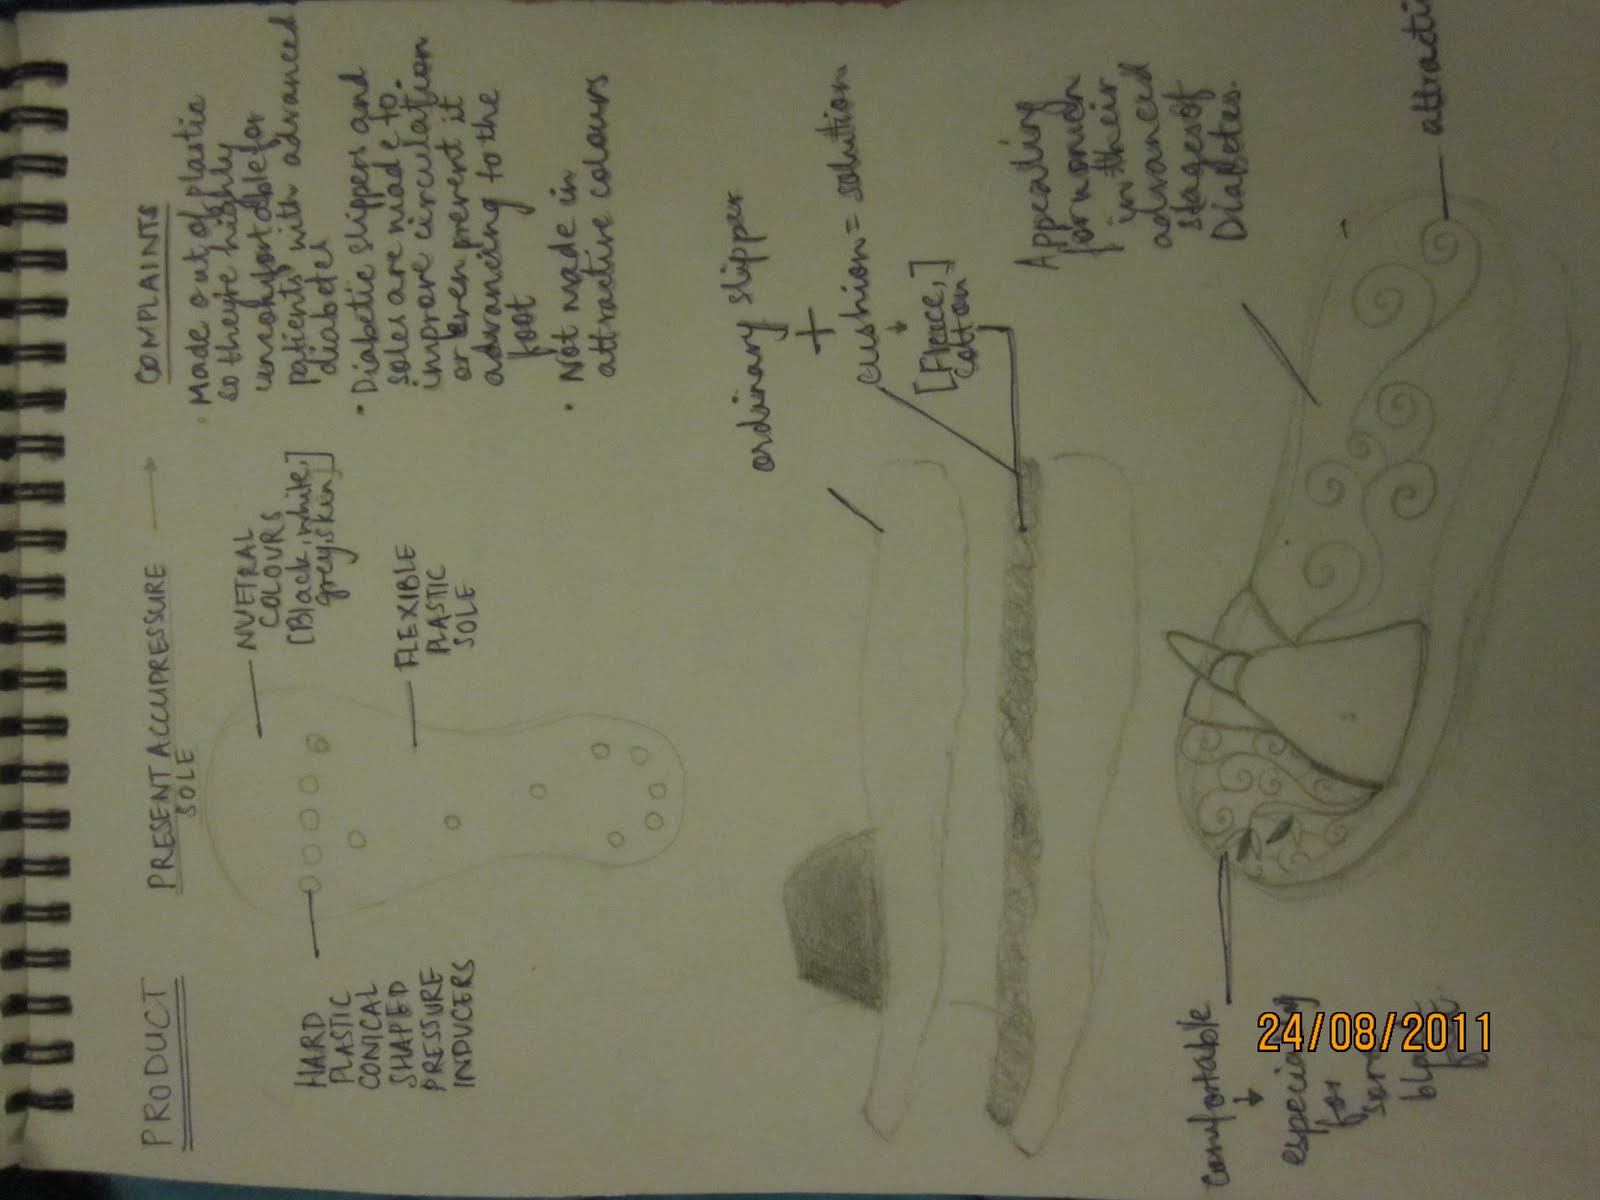 PRODUCT
PRESENT ACCUPRESSURE
SOLE
HARD
PLASTIC
CONICAL
SHAPED
PRESSURE
INDUCERS
NUETRAL
COLOURS
[Black, white,
grey, skin,]
FLEXIBLE
PLASTIC
SOLE
COMPLAINTS
• Made out of plastic
so they're highly
uncomfortable for
patients with advanced
diabetes
• Diabetic slippers and
soles are made to
improve circulation
or even prevent it
advancing to the
foot
• Not made in
attractive colours
ordinary slipper
+
cushion = solution
[Fleece,]
cotton
Appealing
for women
in their
advanced
stages of
Diabetes.
attracti
comfortable
for
24/08/2011